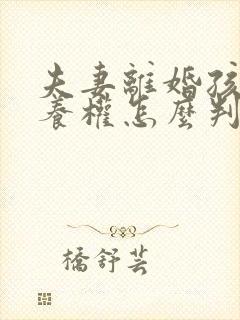 夫妻離婚孩
養權怎麼判
橋舒芸